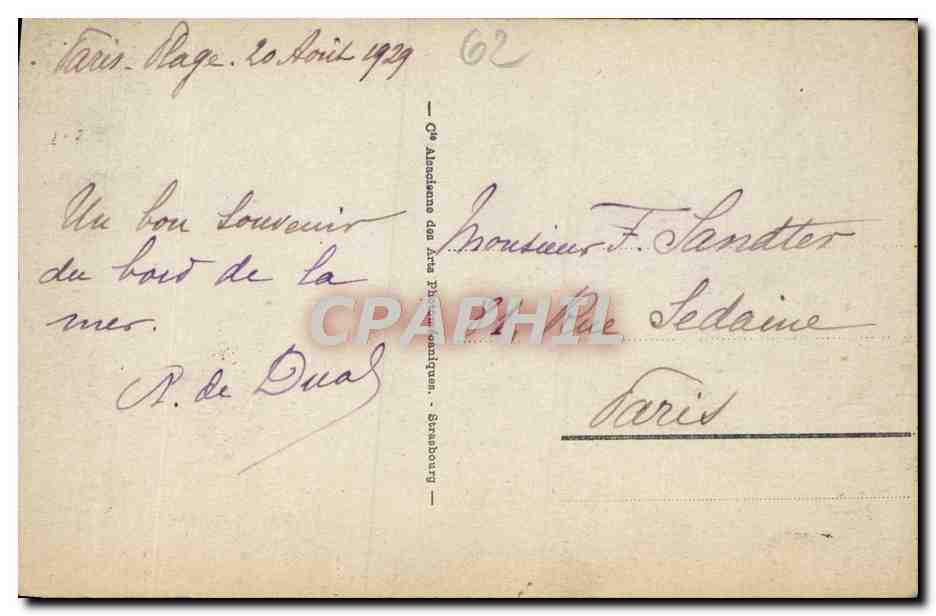 Paris-Plage. 20 Août 1929
62
Un bon souvenir
du bord de la
mer.
— Cie Alsacienne des Arts Photomécaniques. - Strasbourg —
Monsieur F. Sandter
Rue Sedaine
Paris
CPAPHIL